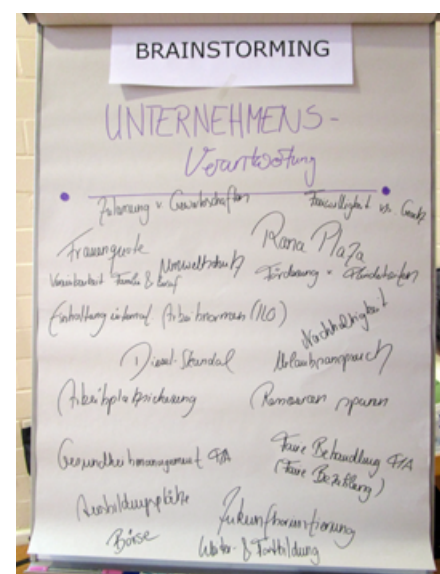 BRAINSTORMING
UNTERNEHMENS-
Verantwortung
v. Gewerkschaften
Freiwilligkeit vs. Gesetz
Frauenquote
Rana Plaza
Vereinbarkeit Familie & Beruf
Umweltschutz
Förderung v.
Einhaltung internat. Arbeitsnormen (ILO)
Nachhaltigkeit
Diesel-Skandal
Urlaubsanspruch
Arbeitsplatzsicherung
Ressourcen sparen
Gesundheitsmanagement
Faire Behandlung
(Faire Bezahlung)
Ausbildungsplätze
Zukunftsorientierung
Börse
Weiter- & Fortbildung